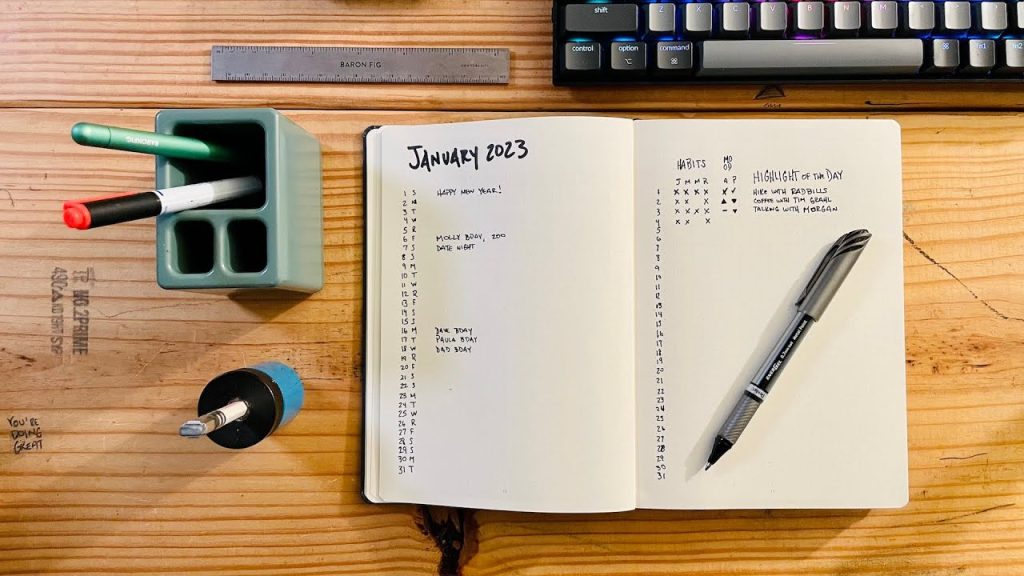 shift Z X C V B N M
control option command ⌘ fn1 fn2
BARON FIG
BARONFIG
NO. 2 PRIME
YOU'RE
DOING
GREAT
JANUARY 2023
1 S HAPPY NEW YEAR!
2 M
3 T
4 W
5 R
6 F MOLLY BDAY, ZOO
7 S DATE NIGHT
8 S
9 M
10 T
11 W
12 R
13 F
14 S
15 S
16 M DAVE BDAY
17 T PAULA BDAY
18 W DAD BDAY
19 R
20 F
21 S
22 S
23 M
24 T
25 W
26 R
27 F
28 S
29 S
30 M
31 T
HABITS MOOD
J M M R A P HIGHLIGHT OF THE DAY
1 X X X X HIKE WITH RADBILLS
2 X X X X COFFEE WITH TIM GRAHL
3 X X X X TALKING WITH MORGAN
4 X X X
5
6
7
8
9
10
11
12
13
14
15
16
17
18
19
20
21
22
23
24
25
26
27
28
29
30
31